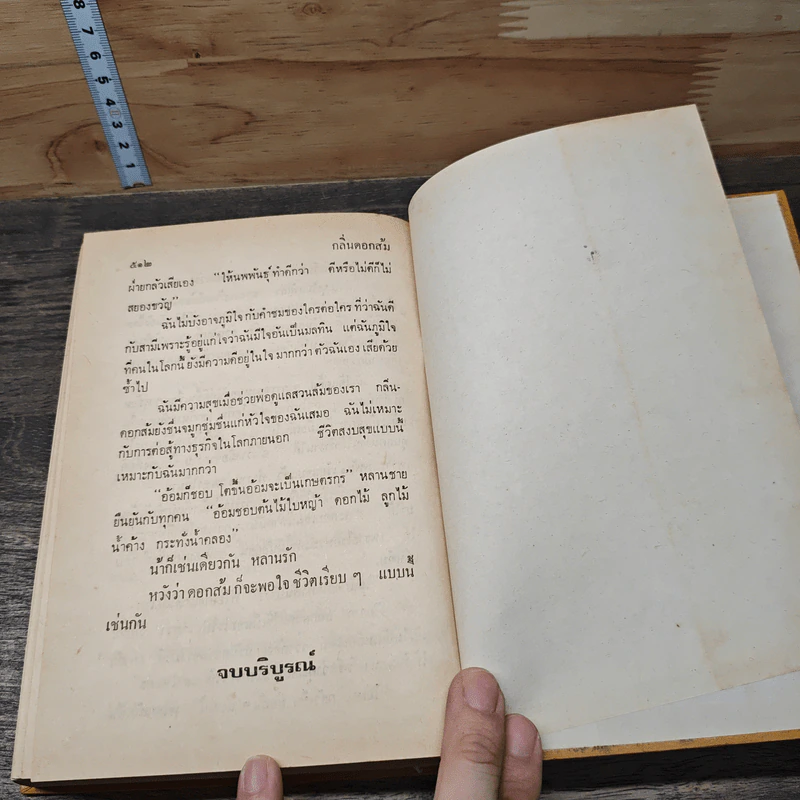 8 7 6 5 4 3 2 1
๕๑๒
กลิ่นดอกส้ม
ฝ่ายกลัวเสียเอง "ให้นพพันธุ์ทำดีกว่า ดีหรือไม่ดีก็ไม่
สยองขวัญ"
ฉันไม่บังอาจภูมิใจ กับคำชมของใครต่อใคร ที่ว่าฉันดี
กับสามีเพราะรู้อยู่แก่ใจว่าฉันมีใจอันเป็นมลทิน แต่ฉันภูมิใจ
ที่คนในโลกนี้ ยังมีความดีอยู่ในใจ มากกว่า ตัวฉันเอง เสียด้วย
ซ้ำไป
ฉันมีความสุขเมื่อช่วยพ่อดูแลสวนส้มของเรา กลิ่น-
ดอกส้มยังชื่นจมูกชุ่มชื่นแก่หัวใจของฉันเสมอ ฉันไม่เหมาะ
กับการต่อสู้ทางธุรกิจในโลกภายนอก ชีวิตสงบสุขแบบนี้
เหมาะกับฉันมากกว่า
"อ้อมก็ชอบ โตขึ้นอ้อมจะเป็นเกษตรกร" หลานชาย
ยืนยันกับทุกคน "อ้อมชอบต้นไม้ใบหญ้า ดอกไม้ ลูกไม้
น้ำค้าง กระทั่งน้ำคลอง"
น้าก็เช่นเดียวกัน หลานรัก
หวังว่า ดอกส้ม ก็จะพอใจ ชีวิตเรียบ ๆ แบบนี้
เช่นกัน
จบบริบูรณ์